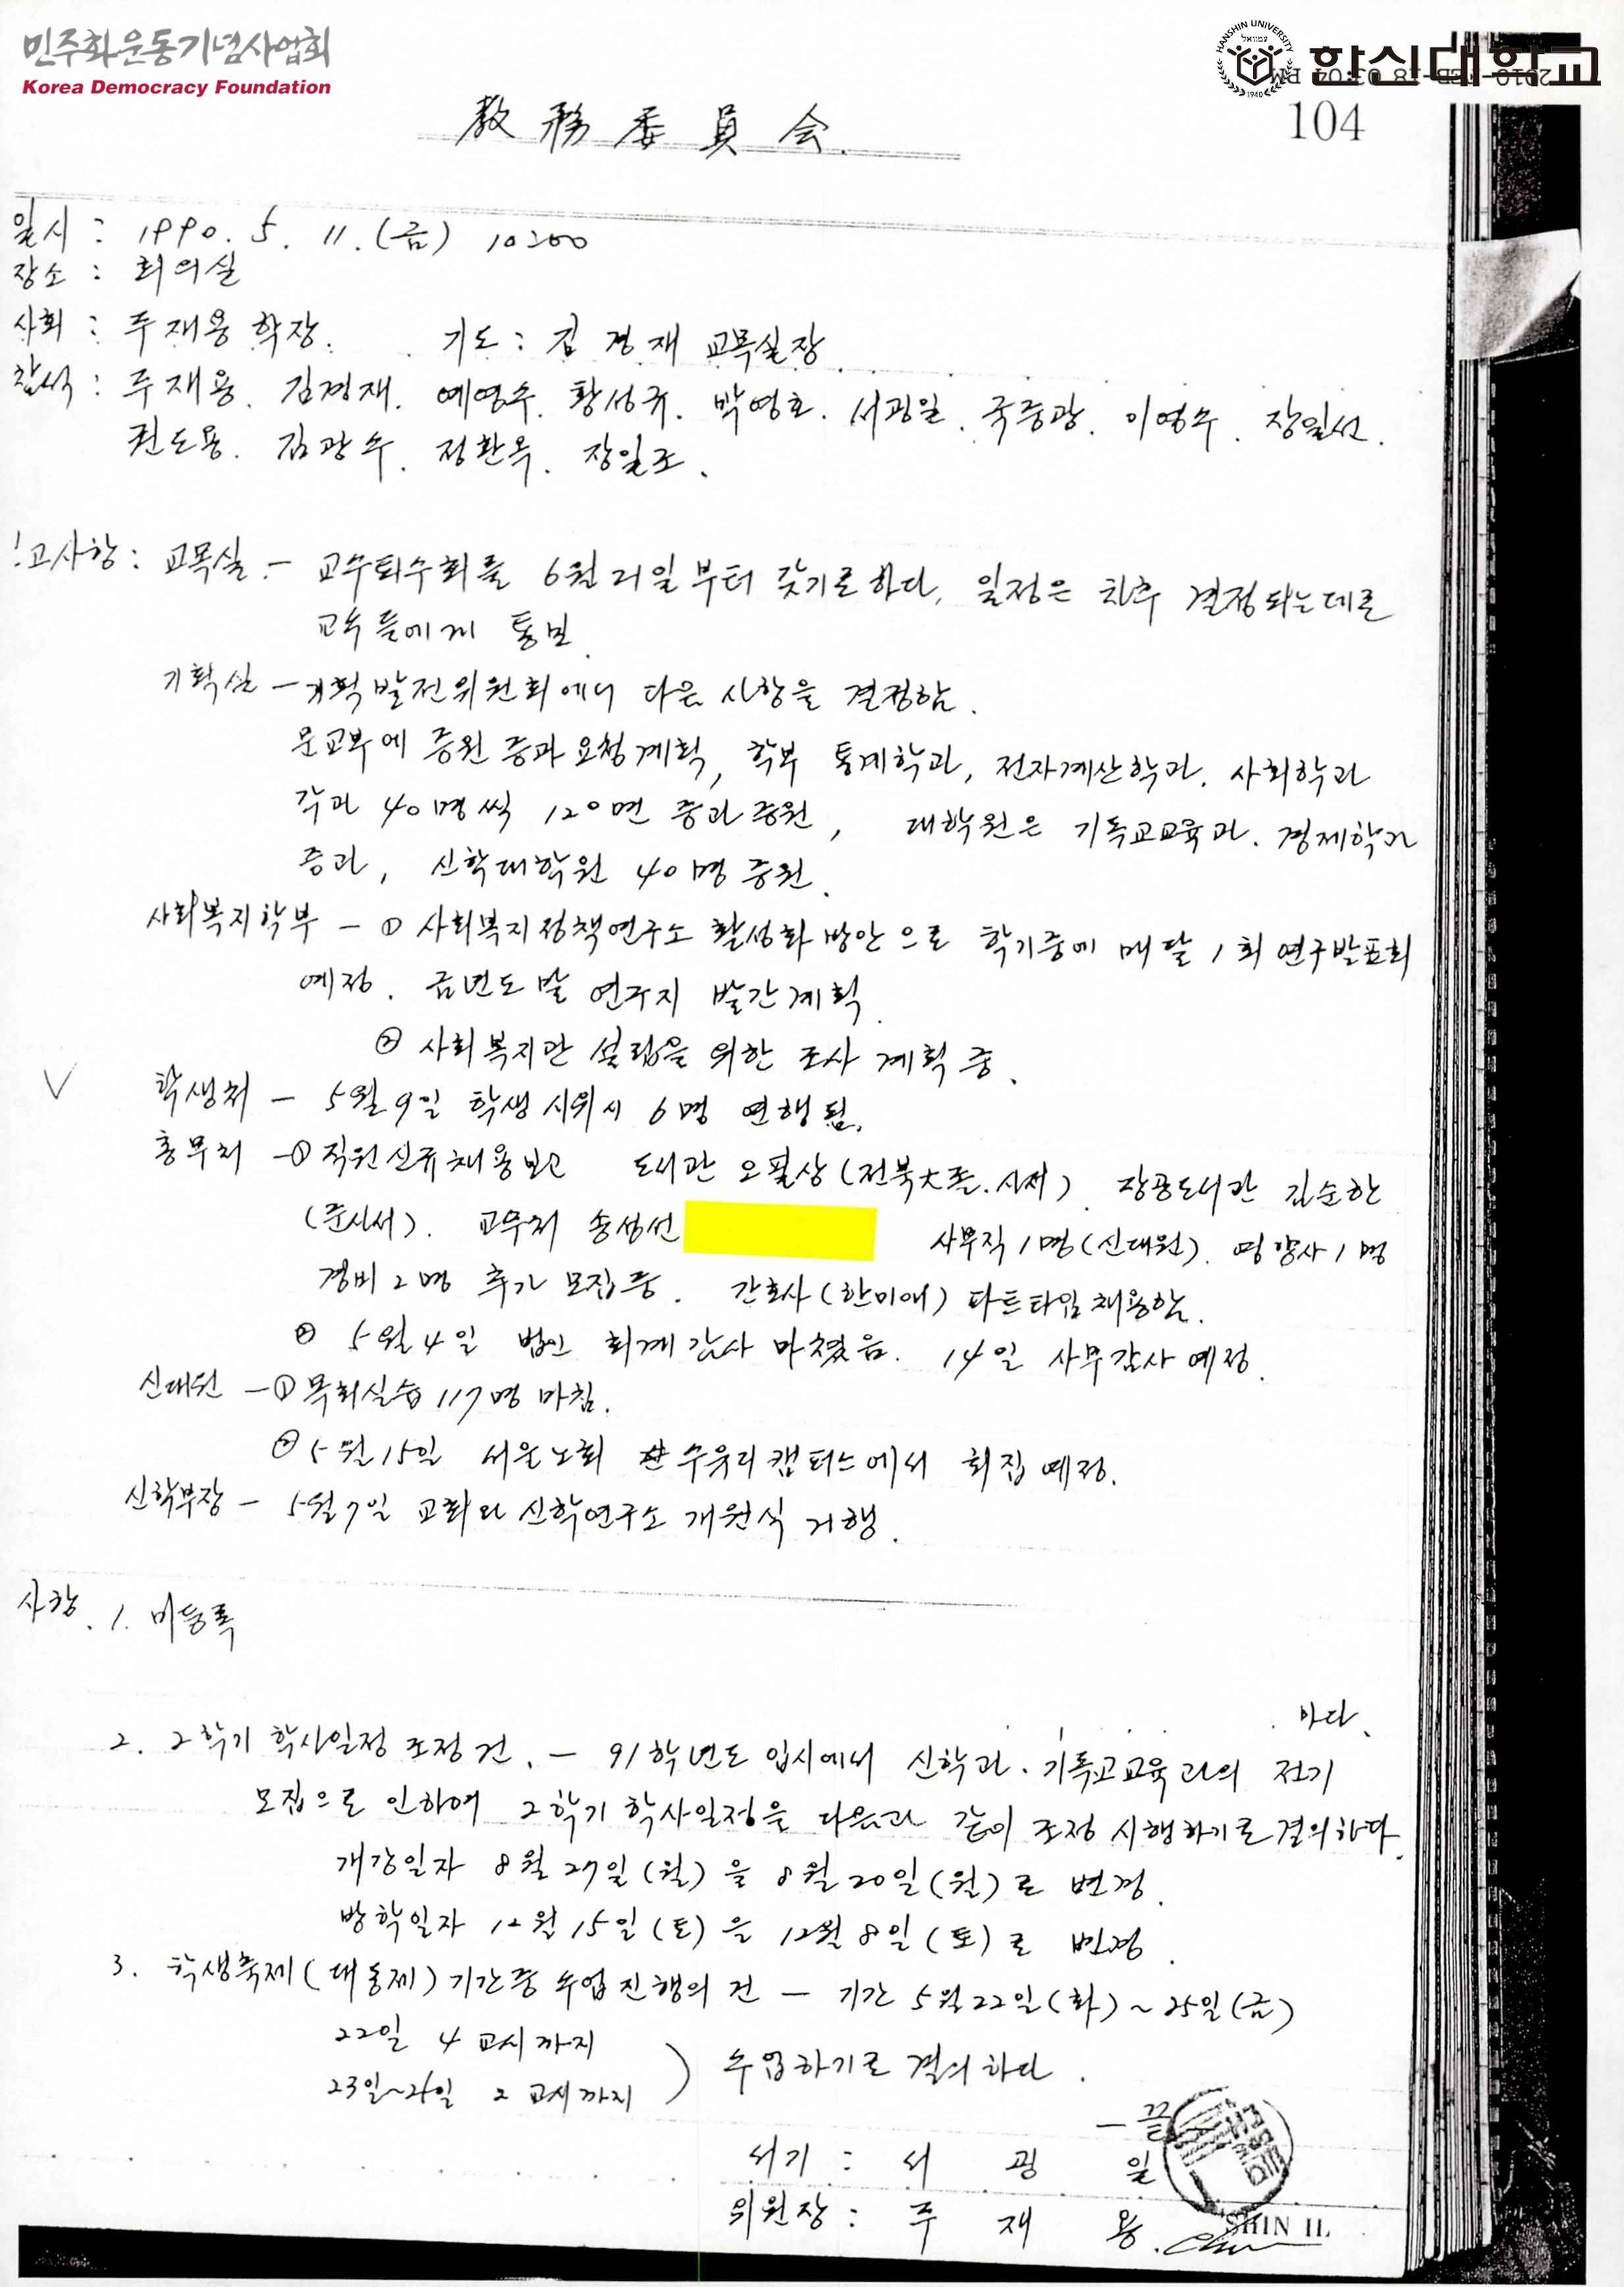 민주화운동기념사업회
Korea Democracy Foundation
HANSHIN UNIVERSITY
1940
한신대학교
104
教務委員会.
일시 : 1990. 5. 11. (금) 10:00
장소 : 회의실
사회 : 주재용 학장. 기도 : 김경재 교목실장
참석 : 주재용. 김경재. 예영수. 황성규. 박영호. 서굉일. 국중광. 이영수. 장일선.
권도용. 김광수. 정환옥. 장일조.
고사항 : 교목실 - 교수퇴수회를 6월 21일부터 갖기로 하다. 일정은 차후 결정되는데로
교수들에게 통보.
기획실 - 기획발전위원회에서 다음 사항을 결정함.
문교부에 증원 증과 요청계획, 학부 통계학과, 전자계산학과. 사회학과
각과 40명씩 120명 증과증원, 대학원은 기독교교육과. 경제학과
증과, 신학대학원 40명 증원.
사회복지학부 - ① 사회복지정책연구소 활성화 방안으로 학기중에 매달 1회 연구발표회
예정. 금년도 말 연구지 발간계획.
② 사회복지관 설립을 위한 조사 계획 중.
학생처 - 5월 9일 학생 시위시 6명 연행됨.
총무처 - ① 직원신규채용보고 도서관 오필상 (전북大졸. 사서). 장공도서관 김순한
(준사서). 교무처 송성선 사무직 1명 (신대원). 영양사 1명
경비 2명 추가 모집중. 간호사 (한미애) 파트타임 채용함.
② 5월 4일 법인 회계감사 마쳤음. 14일 사무감사 예정.
신대원 - ① 목회실습 117명 마침.
② 5월 15일 서울노회 수유리캠퍼스에서 회집 예정.
신학부장 - 5월 7일 교회와 신학연구소 개원식 거행.
사항. 1. 미등록
하다.
2. 2학기 학사일정 조정건. - 91학년도 입시에서 신학과. 기독교교육과의 전기
모집으로 인하여 2학기 학사일정을 다음과 같이 조정 시행하기로 결의하다.
개강일자 8월 27일 (월)을 8월 20일 (월)로 변경.
방학일자 12월 15일 (토)을 12월 8일 (토)로 변경.
3. 학생축제 (대동제) 기간중 수업진행의 건 - 기간 5월 22일 (화) ~ 25일 (금)
22일 4교시까지
23일~25일 2교시까지 ) 수업하기로 결의하다.
- 끝
서기 : 서 굉 일
위원장 : 주 재 용.
SHIN IL